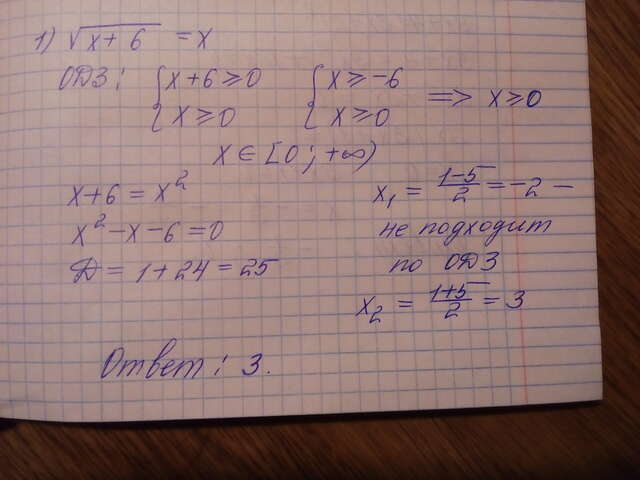 1) √(x+6) = x
ОДЗ: { x+6 ≥ 0 { x ≥ -6
{ x ≥ 0 { x ≥ 0 => x ≥ 0
x ∈ [0; +∞)
x+6 = x²
x² - x - 6 = 0
D = 1 + 24 = 25
x₁ = (1-5)/2 = -2 -
не подходит
по ОДЗ
x₂ = (1+5)/2 = 3
Ответ: 3.